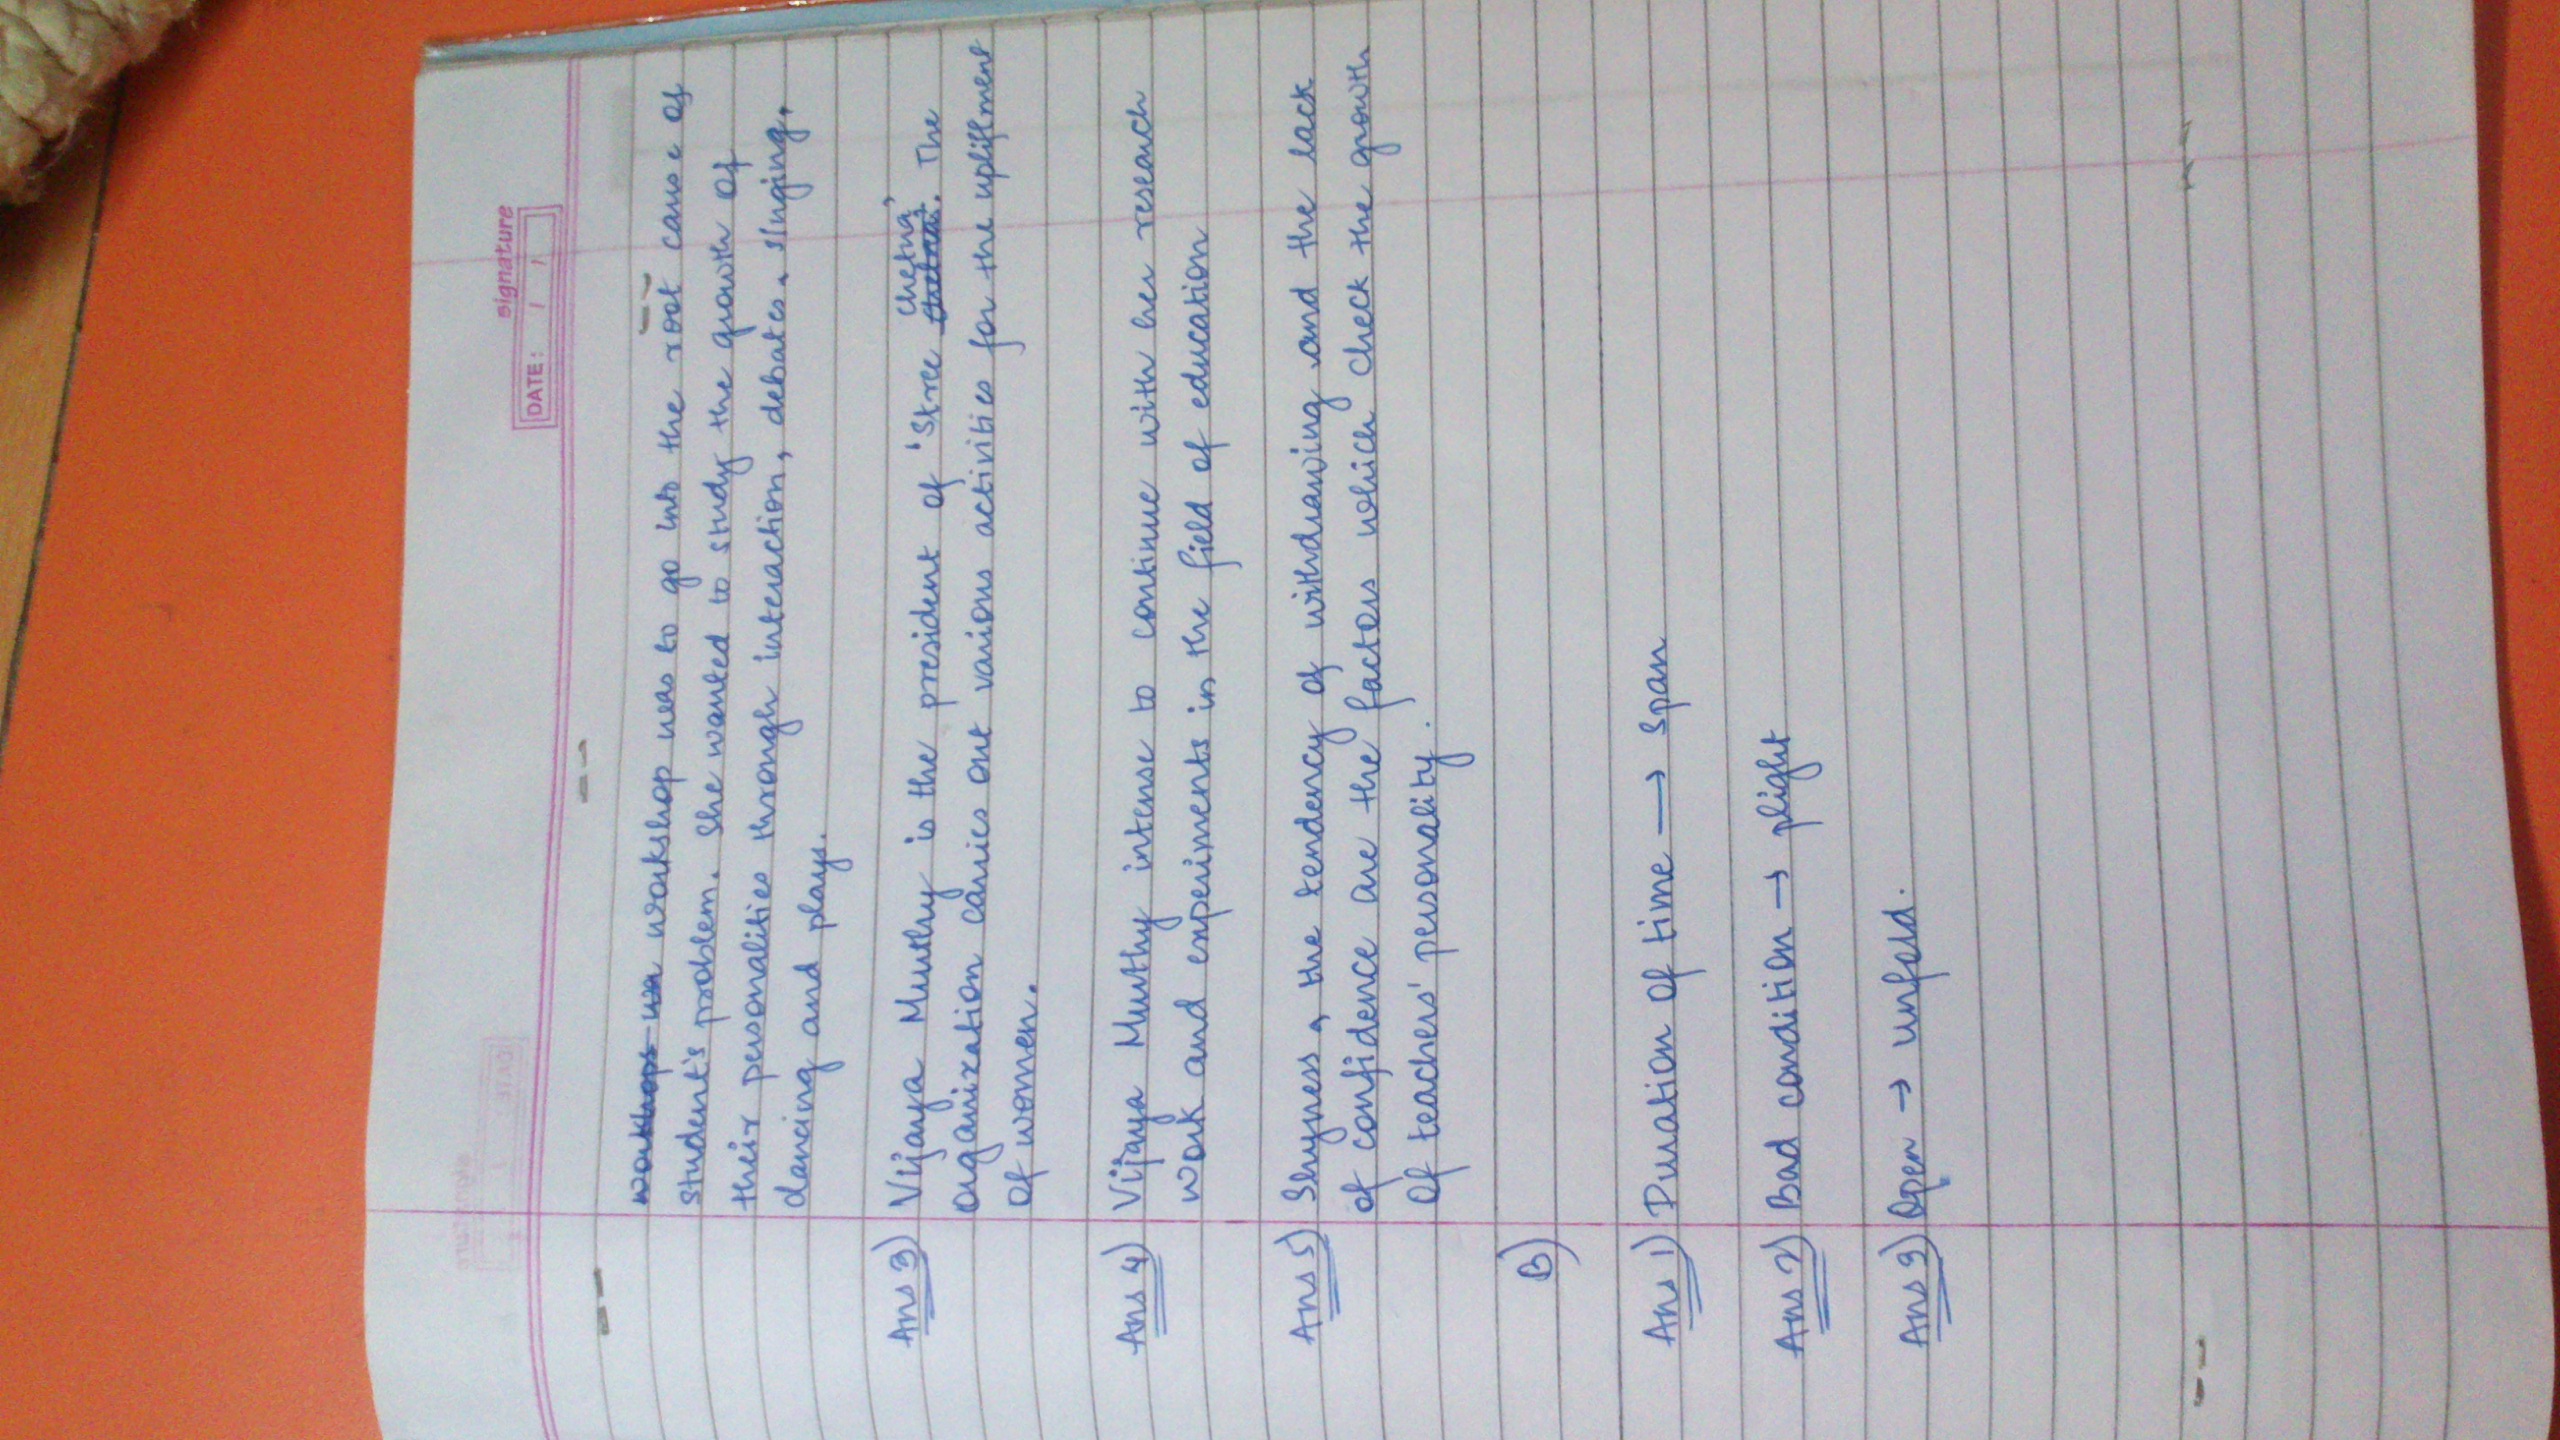 signature
DATE: / /
workhops wa workshop was to go into the root cause of
student's problem. She wanted to study the growth of
their personalities through interaction, debates, singing,
dancing and plays.
Ans 3) Vijaya Murthy is the president of 'Stree chetna'. The
organization carries out various activities for the upliftment
of women.
Ans 4) Vijaya Murthy intense to continue with her research
work and experiments in the field of education
Ans 5) Shyness, the tendency of withdrawing and the lack
of confidence are the factors which check the growth
of teachers' personality.
B)
Ans 1) Duration of time → span
Ans 2) Bad condition → plight
Ans 3) Open → unfold.